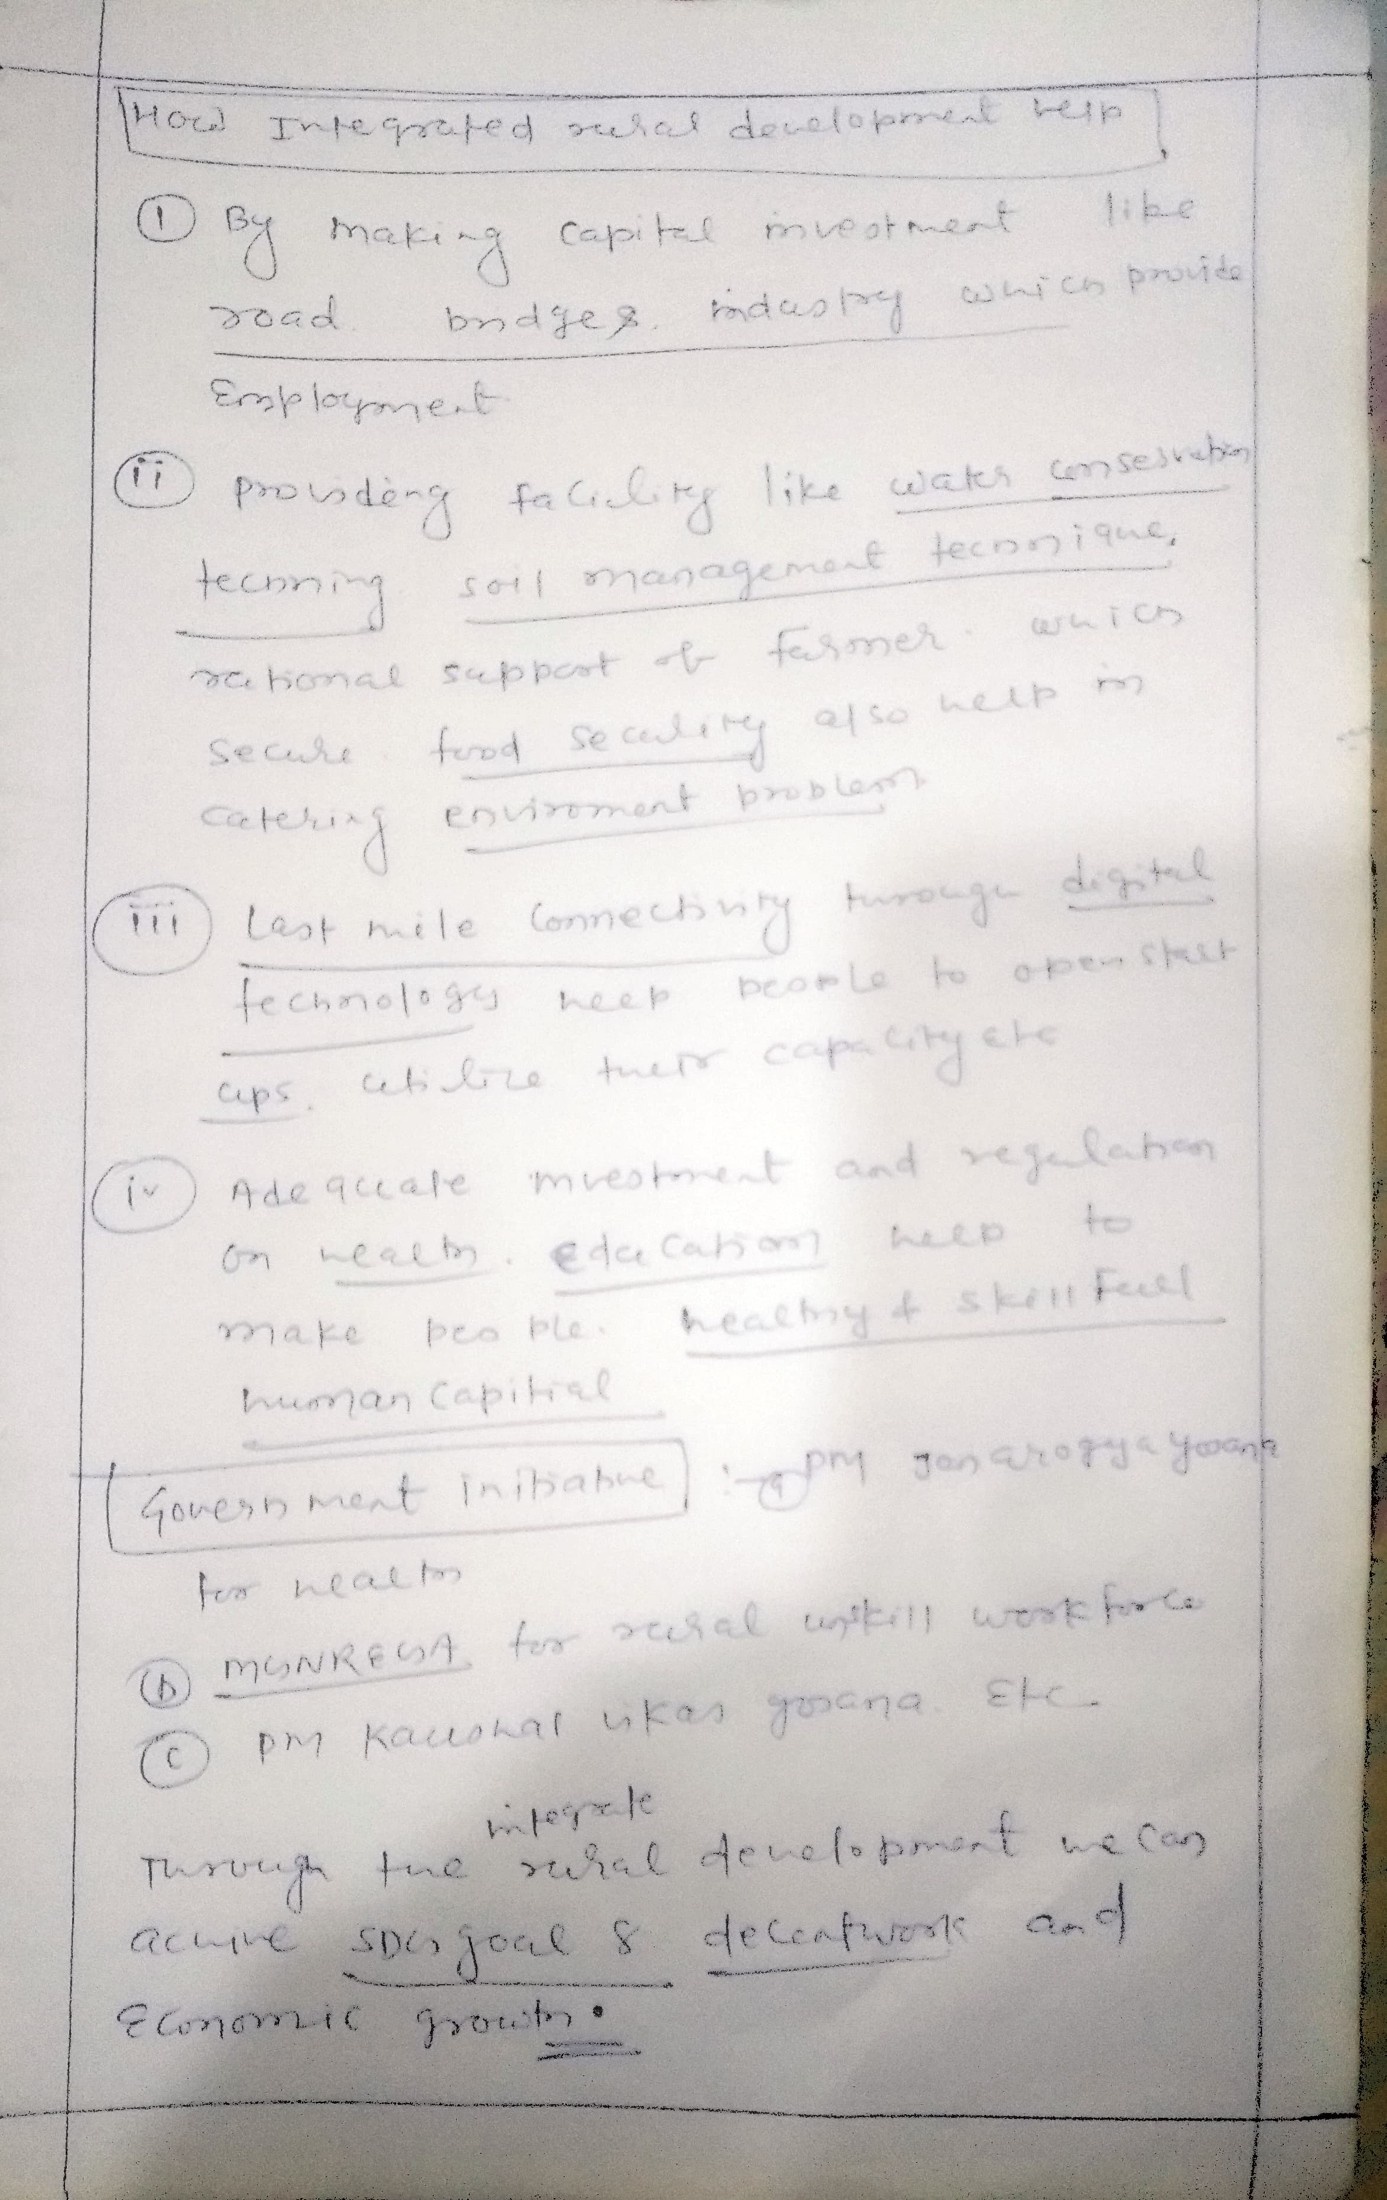 How Integrated rural development help
① By making capital investment like
road. bridges. industry which provide
Employment
ii providing facility like water conservation
techning soil management technique,
rational support of farmer. which
secure. food security also help in
catering enviroment problem
iii Last mile connectivity through digital
technology help people to open start
ups. utilize their capacity etc
iv Adequate investment and regulation
on health. education help to
make people. healthy & skill full
human capitial
Government initiative :- ⓐ PM Jan arogya yojana
for health
ⓑ MGNREGA for rural unskill workforce
ⓒ PM Kaushal vikas yojana. Etc.
integrate
Through the rural development we can
achive SDG goal 8 decent work and
Economic growth.